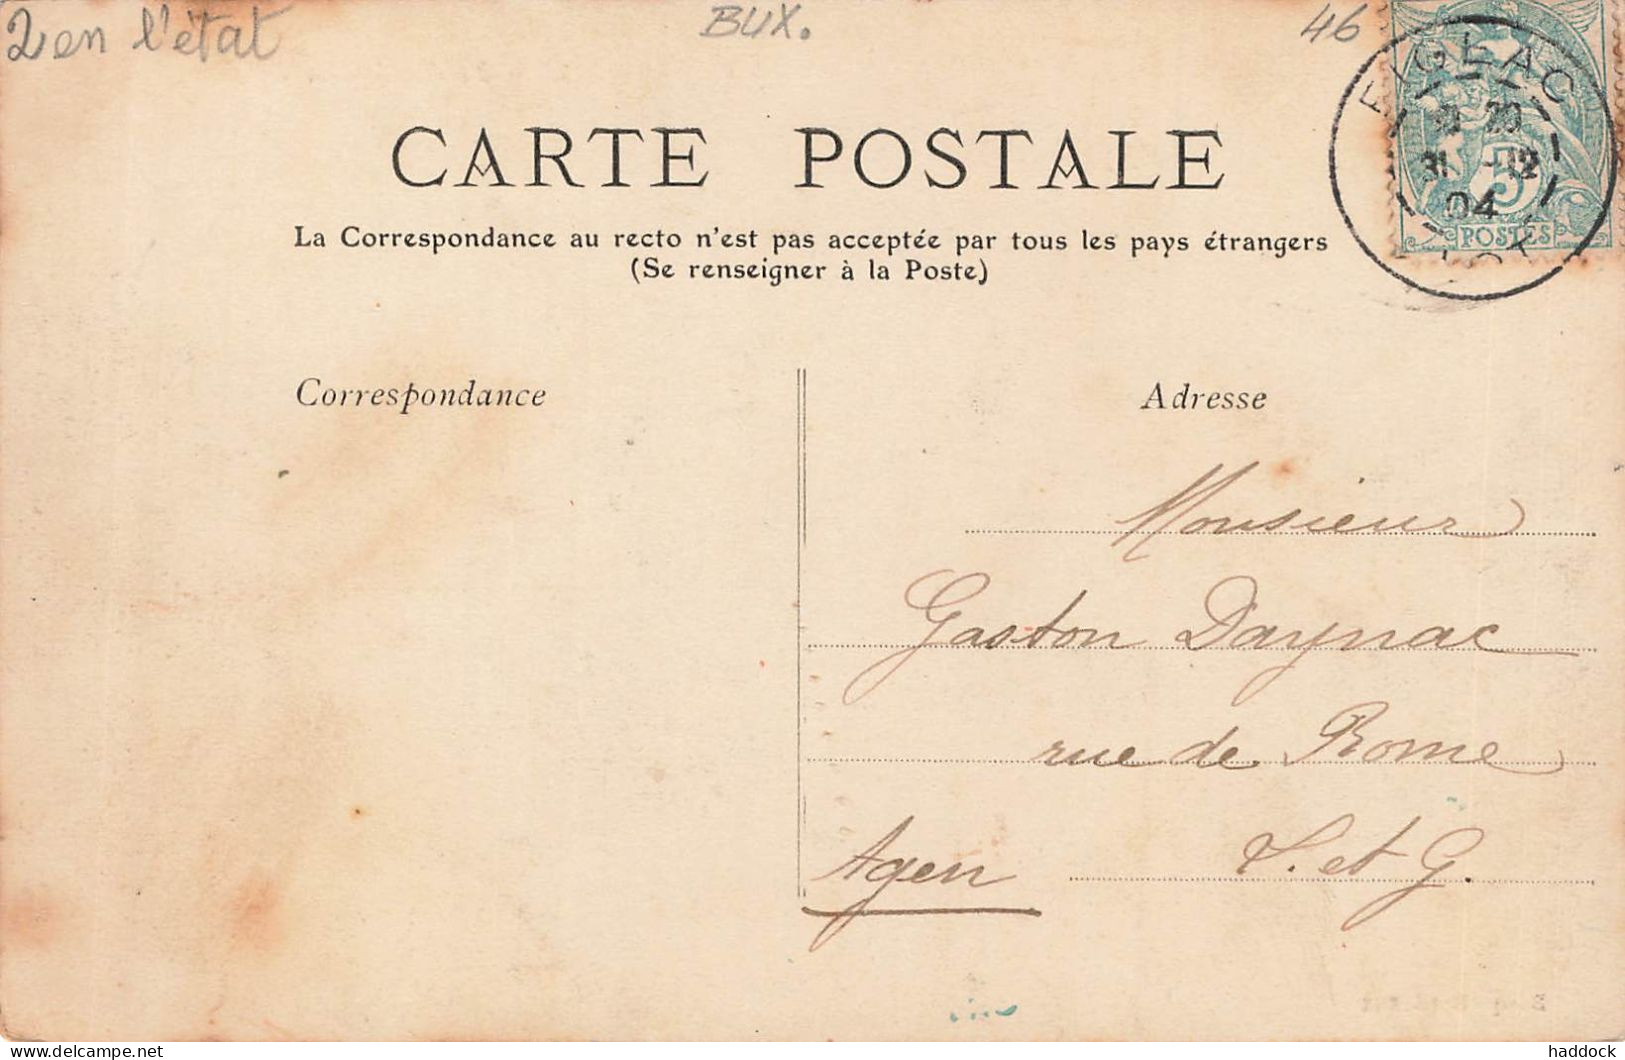 2 en l'état
BUX.
46
FIGEAC
20
31 -12
04
LOT
5
POSTES
CARTE POSTALE
La Correspondance au recto n'est pas acceptée par tous les pays étrangers
(Se renseigner à la Poste)
Correspondance
Adresse
Monsieur
Gaston Daynac
rue de Rome
Agen L. et G.
delcampe.net
haddock